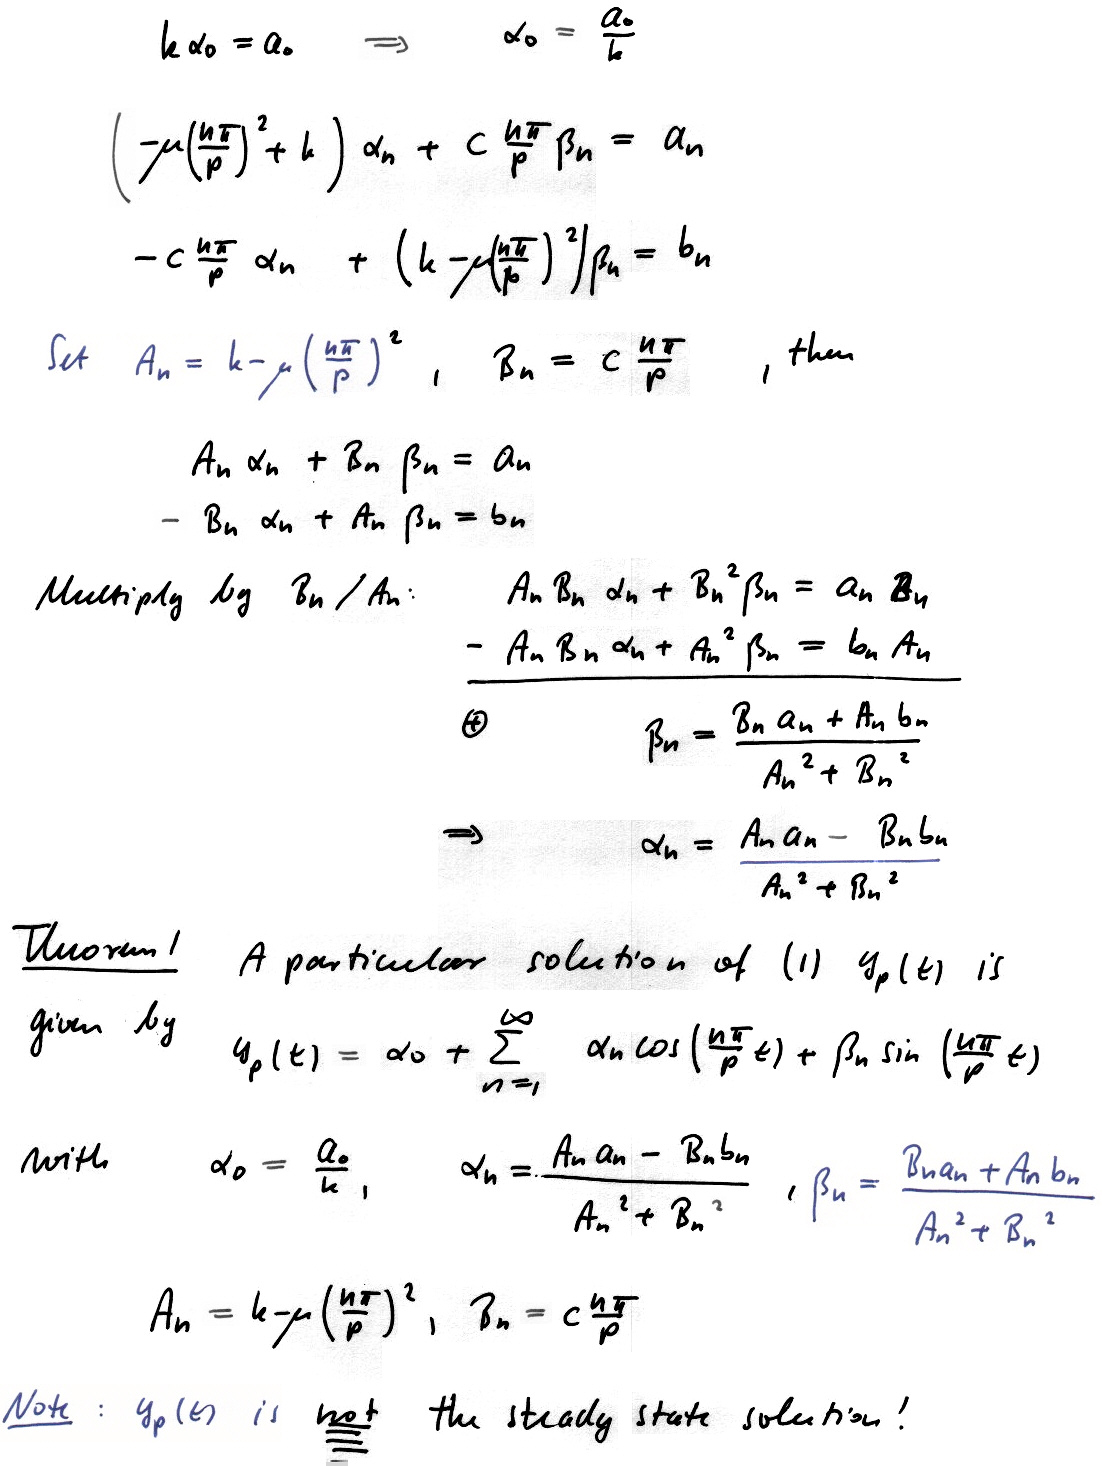 kα₀ = a₀ ⟹ α₀ = a₀/k
(-μ(nπ/p)² + k) αₙ + c nπ/p βₙ = aₙ
-c nπ/p αₙ + (k - μ(nπ/p)²) βₙ = bₙ
Set Aₙ = k - μ(nπ/p)², Bₙ = c nπ/p, then
Aₙ αₙ + Bₙ βₙ = aₙ
- Bₙ αₙ + Aₙ βₙ = bₙ
Multiply by Bₙ / Aₙ: Aₙ Bₙ αₙ + Bₙ² βₙ = aₙ Bₙ
- Aₙ Bₙ αₙ + Aₙ² βₙ = bₙ Aₙ
⊕ βₙ = (Bₙ aₙ + Aₙ bₙ)/(Aₙ² + Bₙ²)
⟹ αₙ = (Aₙ aₙ - Bₙ bₙ)/(Aₙ² + Bₙ²)
Theorem 1 A particular solution of (1) yₚ(t) is
given by yₚ(t) = α₀ + ∑_{n=1}^{∞} αₙ cos(nπ/p t) + βₙ sin(nπ/p t)
with α₀ = a₀/k, αₙ = (Aₙ aₙ - Bₙ bₙ)/(Aₙ² + Bₙ²), βₙ = (Bₙ aₙ + Aₙ bₙ)/(Aₙ² + Bₙ²)
Aₙ = k - μ(nπ/p)², Bₙ = c nπ/p
Note: yₚ(t) is not the steady state solution!